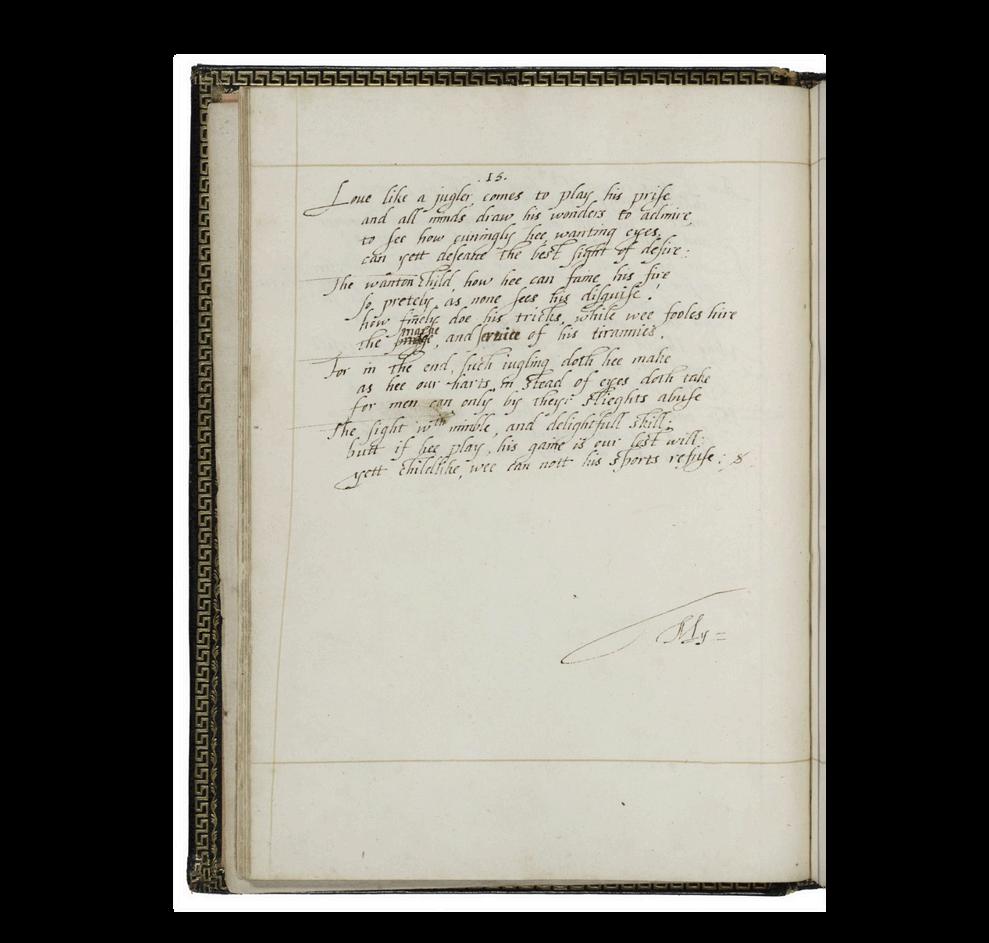 .15.
Loue like a jugler, comes to play his prise
and all minds draw his wonders to admire,
to see how cuningly hee, wanting eyes,
can yett deseaue the best sight of desire:
The wanton child, how hee can faine his fire
so pretely, as none sees his disguise,
how finely doe his tricks, while wee fooles hire
the maske, and seruice of his tirannies,
For in the end, such iugling doth hee make
as hee our harts, in stead of eyes doth take
for men can only by theyr slieghts abuse
The sight wth nimble, and delightfull skill;
butt if hee play, his gaine is our lost will:
yett childlike, wee can nott his sports refuse:
My=